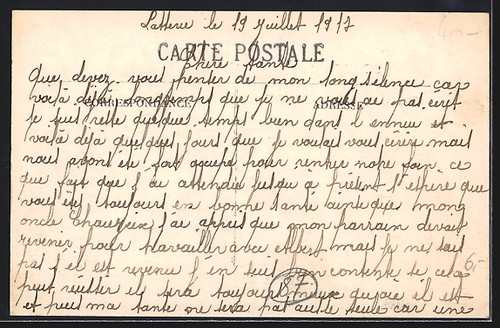 Latterie le 19 Juillet 1917
40-
CARTE POSTALE
Chère tante
Que devez vous penser de mon long silence car
voilà déjà longtemps que je ne vous ai pas écrit
CORRESPONDANCE ADRESSE
je suis resté quelque temps bien dans l ennui et
voilà déjà quelques jours que je voulais vous écrire mais
nous avons été fort occupé pour rentrer notre foin ce
que fait que j ai attendu jusqu à présent J espère que
vous êtes toujours en bonne santé ainsi que mon
oncle j ai appris que mon parrain devait
revenir pour travailler avec mais je ne sais
pas s il est revenu j en suis contente si cela
peut il sera toujours mieux il est
et puis ma tante ne sera pas toute seule car une
6,-
87